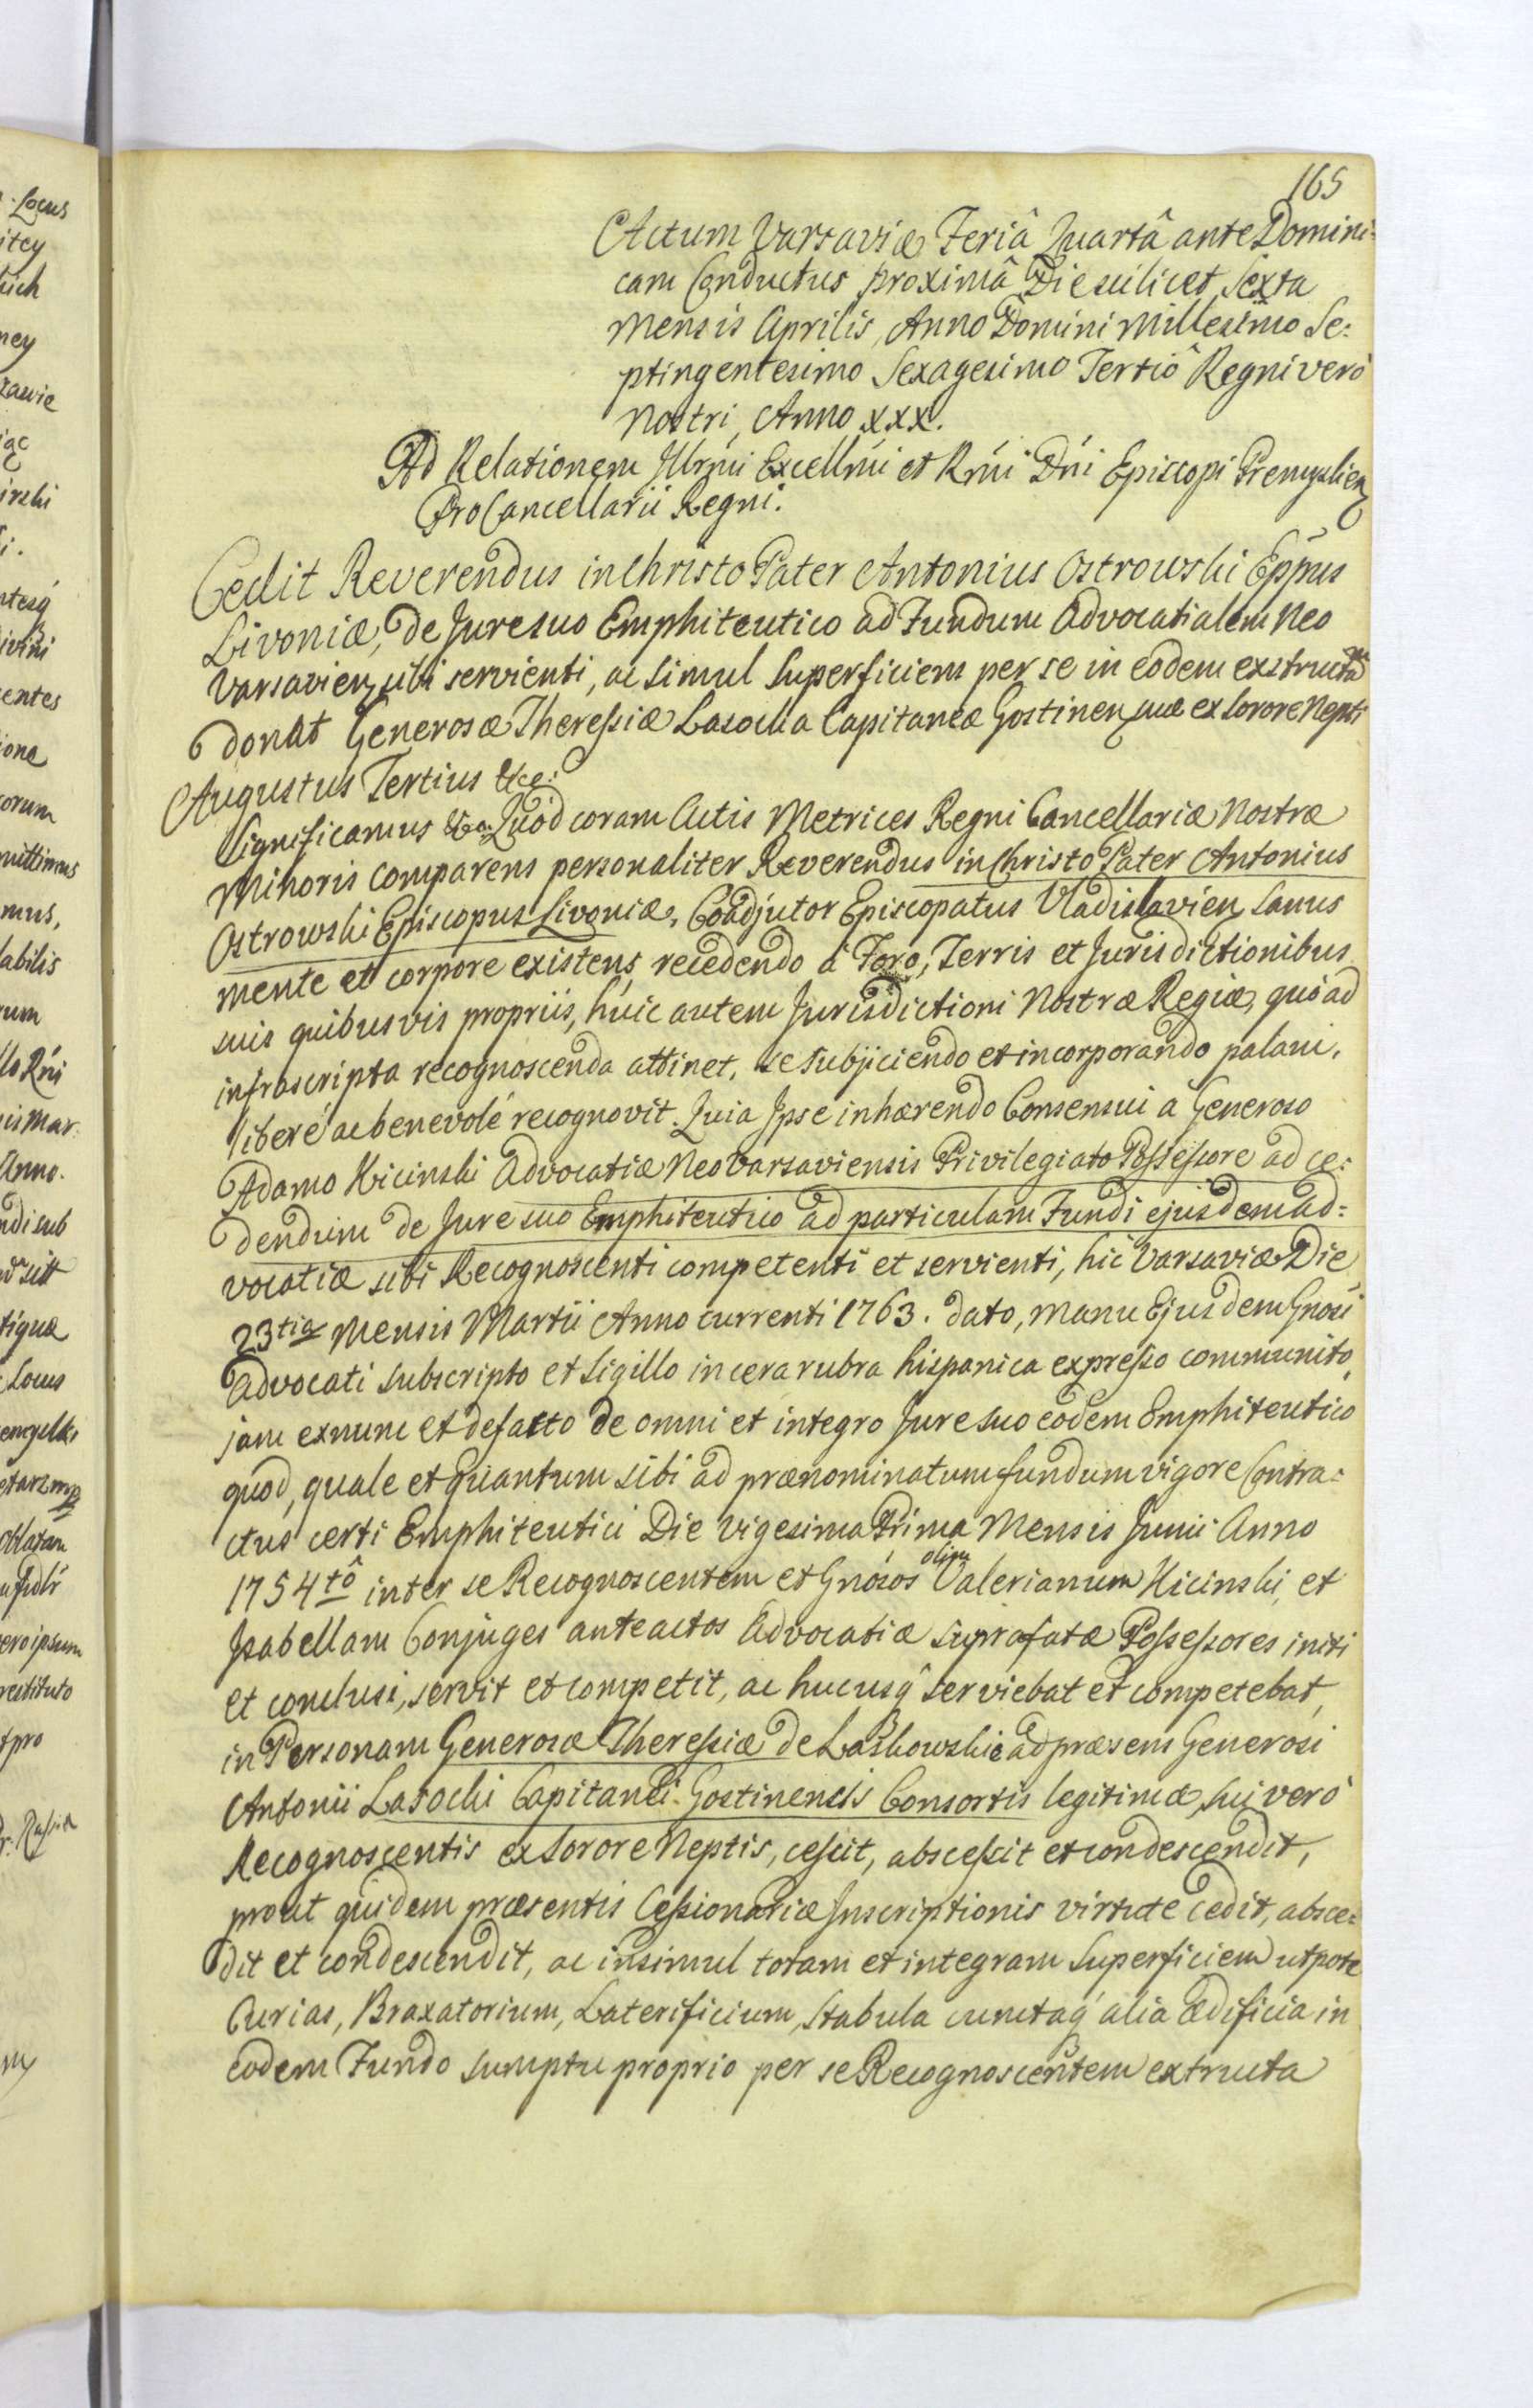 165
Actum Varsaviæ Feriâ Quartâ ante Domini-
cam Conductus proximâ Die scilicet Sexta
Mensis Aprilis, Anno Domini Millesimo Se-
ptingentesimo Sexagesimo Tertiô Regni verò
Nostri, Anno XXX.
Ad Relationem Illrm̃i Excellm̃i et Rm̃i Dñi Episcopi Premyslien
ProCancellarii Regni.
Cedit Reverendus in Christo Pater Antonius Ostrowski Epp̃us
Livoniæ, de Jure suo Emphiteutico ad Fundum Advocatialem Neo
Varsavien sibi servienti, ac simul Superficiem per se in eodem exstructam
donat Generosæ Theressiæ Lasocka Capitaneæ Gostinen suæ ex Sorore Nepti
Augustus Tertius &ce:
Significamus &ca: Quòd coram Actis Metrices Regni Cancellariæ Nostræ
Minoris comparens personaliter Reverendus in Christo Pater Antonius
Ostrowski Episcopus Livoniæ, Coadjutor Episcopatus Vladislavien, sanus
mente et corpore existens, recedendo à Foro, Terris et Jurisdictionibus
suis quibusvis propriis, huic autem Jurisdictioni Nostræ Regiæ, quò ad
infrascripta recognoscenda attinet, se subjiciendo et incorporando palam,
liberé ac benevolé recognovit. Quia Ipse inhærendo Consensui a Generoso
Adamo Kicinski Advocatiæ NeoVarsaviensis Privilegiato Possessore ad ce-
dendum de Jure suo Emphiteutico ad particulam Fundi ejusdem ad-
vocatiæ sibi Recognoscenti competenti et servienti, hic Varsaviæ Die
23tia Mensis Martii Anno currenti 1763. dato, manu Ejusdem Gnosi
Advocati subscripto et Sigillo in cera rubra hispanica expresso communito,
jam exnunc et defacto de omni et integro Jure suo eodem Emphiteutico
quod, quale et quantum sibi ad prænominatum fundum vigore Contra-
ctus certi Emphiteutici Die Vigesima Prima Mensis Junii Anno
1754tô inter se Recognoscentem et Gnósos olim Valerianum Kicinski, et
Isabellam Conjuges anteactos Advocatiæ supra fatæ Possessores initi
et conclusi, servit et competit, ac hucusq̂ serviebat et competebat,
in Personam Generosæ Theressiæ de Laskowskie ad præsens Generosi
Antonii Lasocki Capitanei Gostinensis Consortis legitimæ, sui verò
Recognoscentis ex Sorore Neptis, cessit, abscessit et condescendit,
prout quidem præsentis Cessionariæ Inscriptionis virtute cedit, absce-
dit et condescendit, ac insimul totam et integram Superficiem utpote
Curias, Braxatorium, Laterificium, Stabula cunctaq́ alia ædificia in
eodem Fundo sumptu proprio per se Recognoscentem extructa